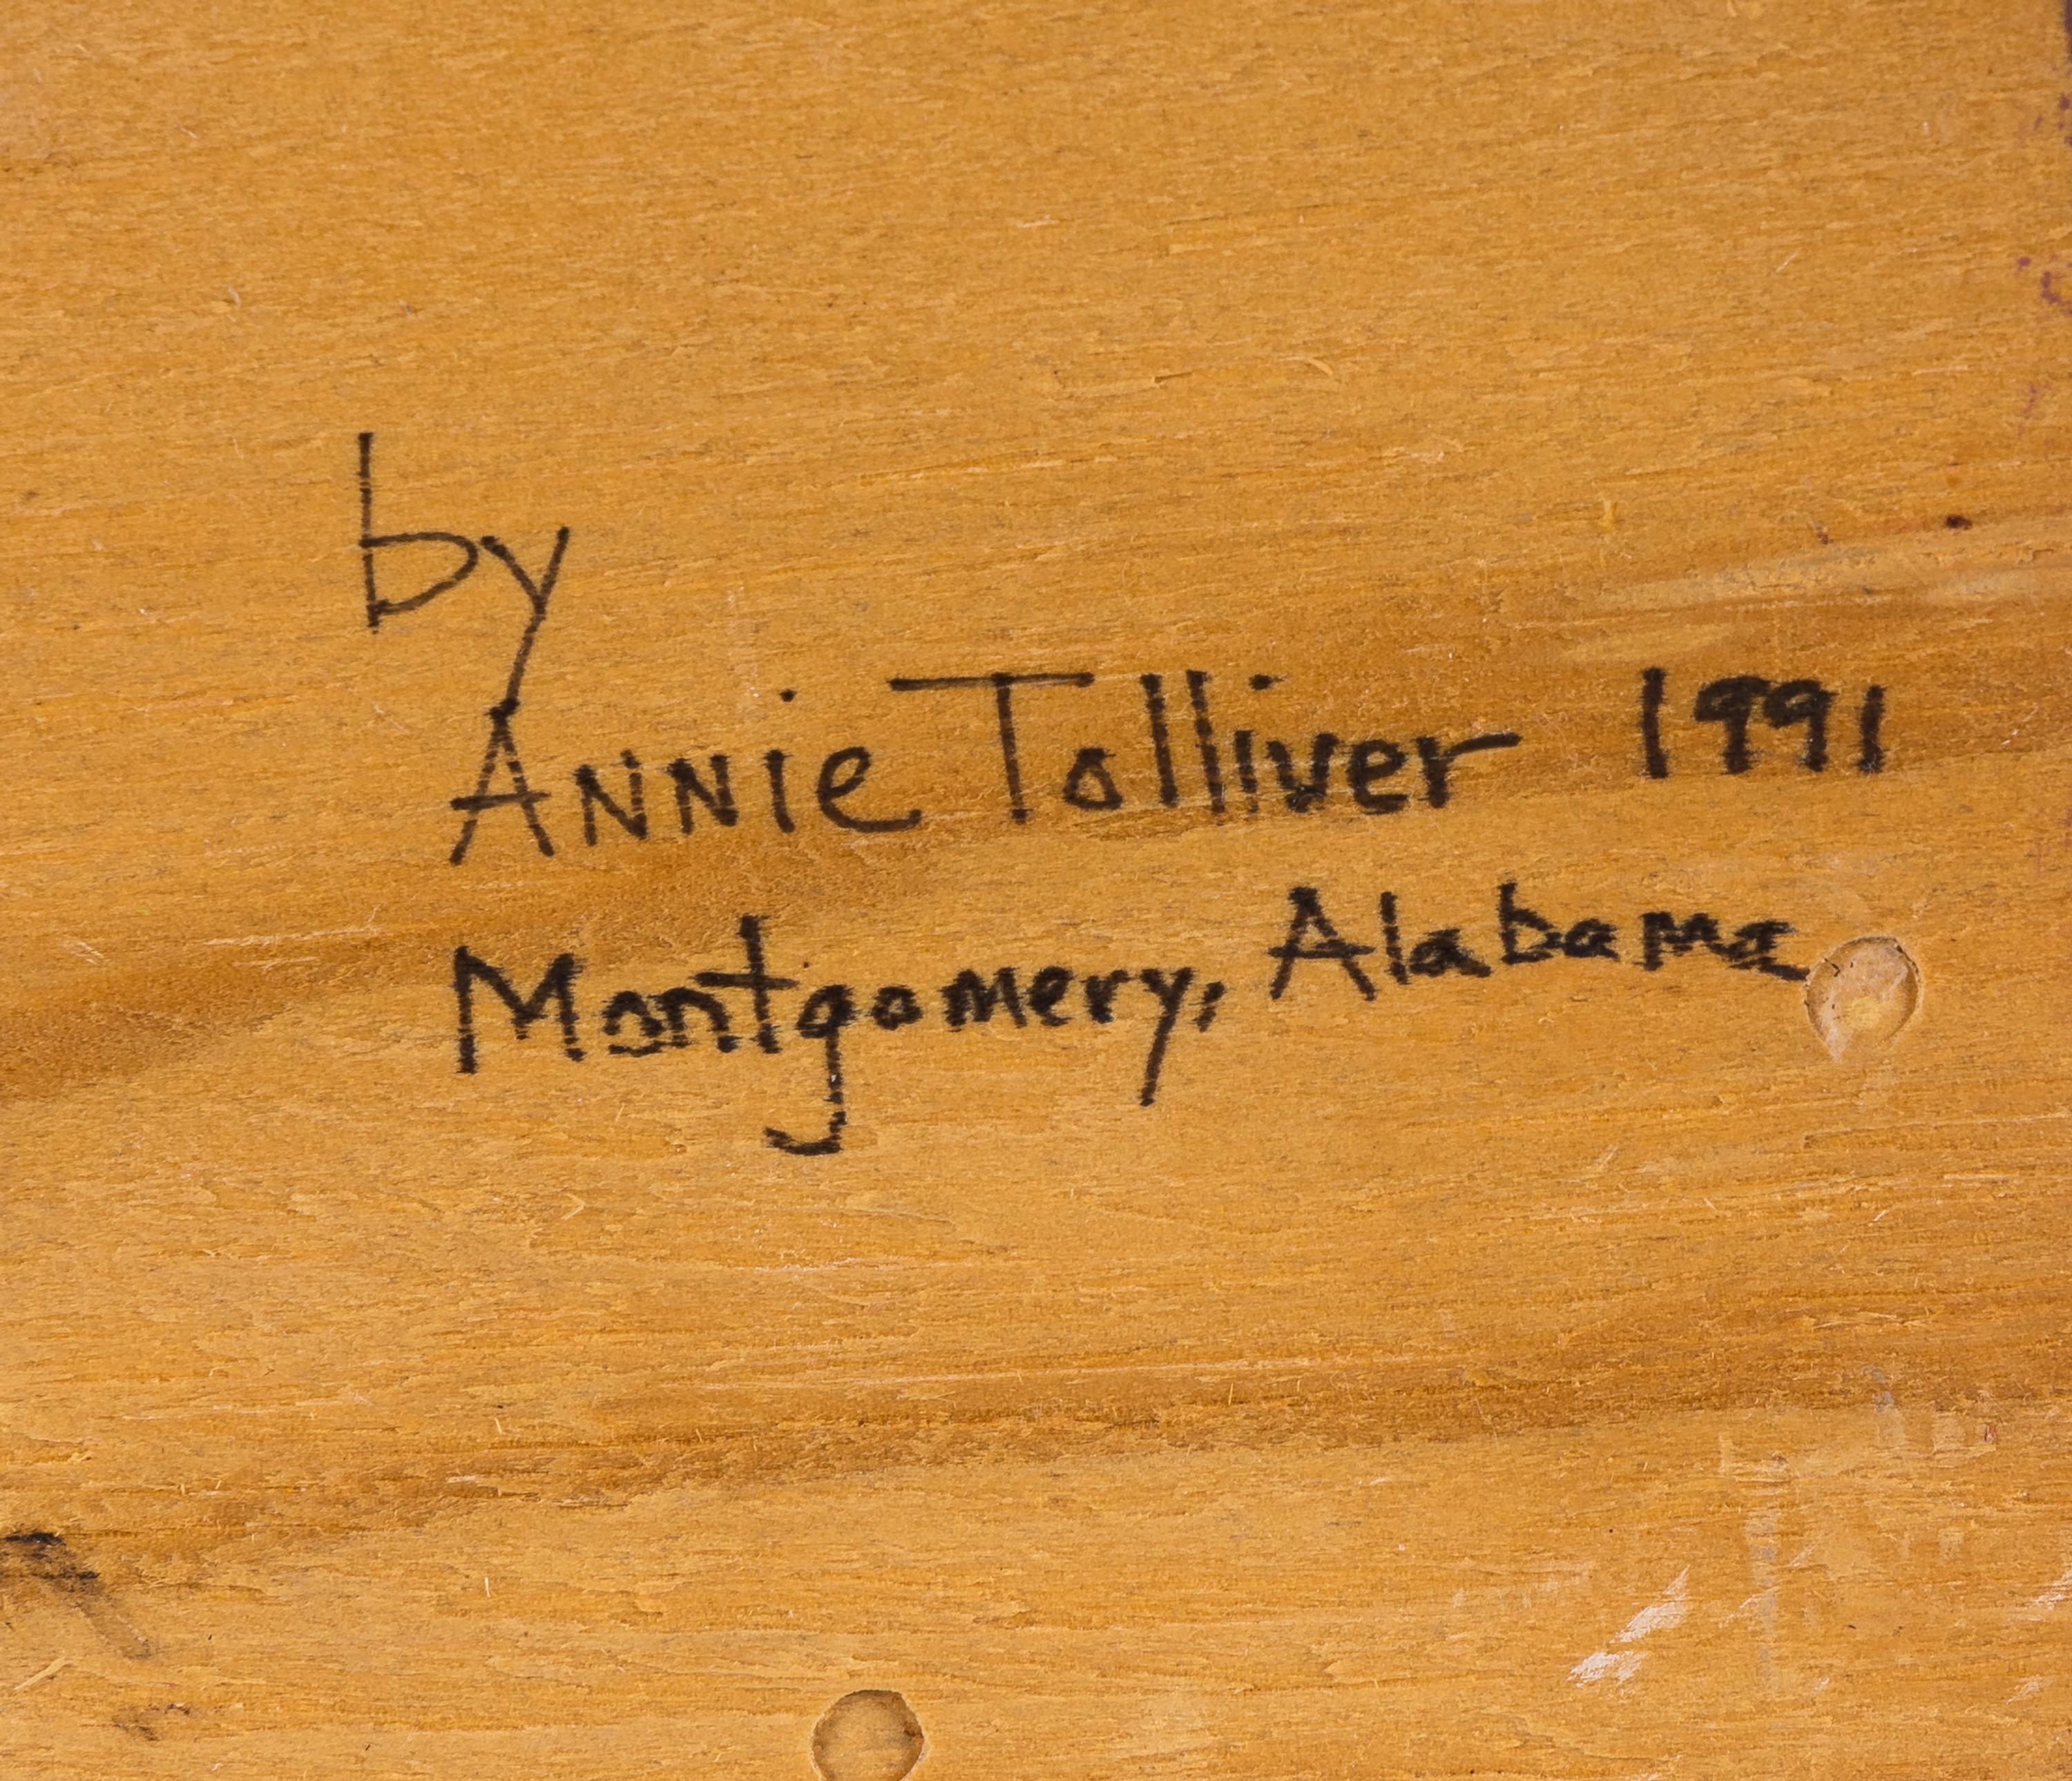 by
Annie Tolliver 1991
Montgomery, Alabama